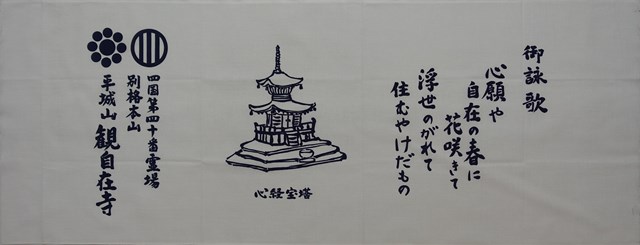 御詠歌
心願や
自在の春に
花咲きて
浮世のがれて
住むやけだもの
心経宝塔
四国第四十番霊場
別格本山
平城山 観自在寺